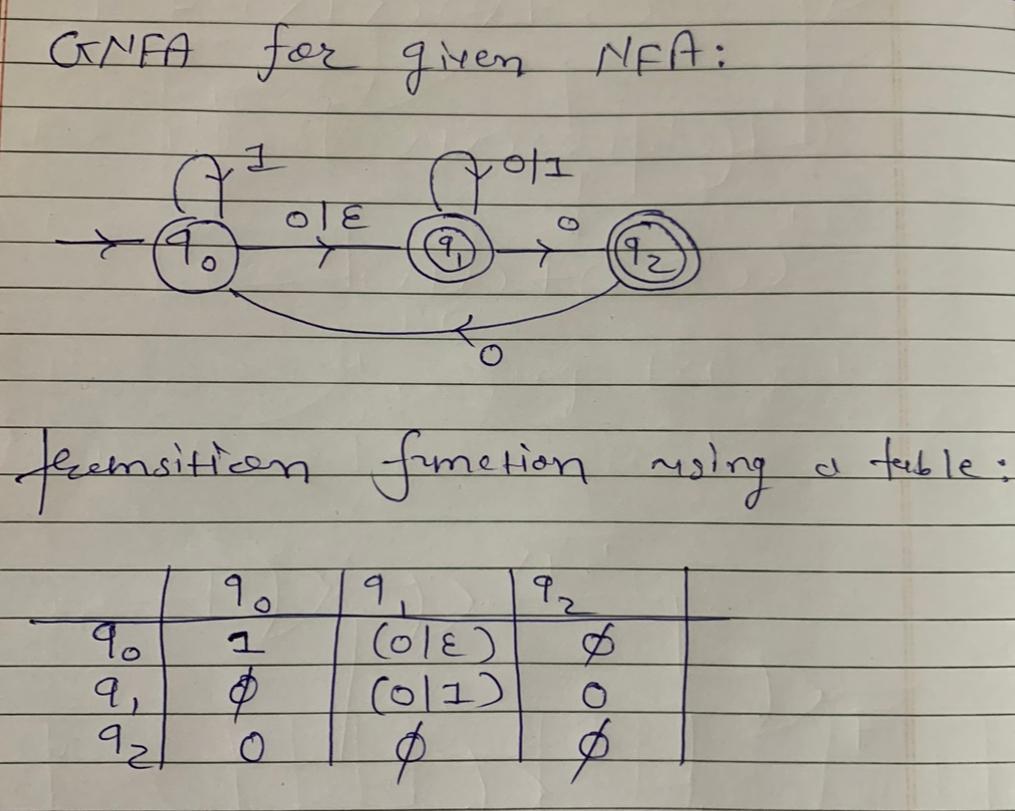 GNFA for given NFA:
1 0/1
0/ε 0
→ q₀ q₁ q₂
0
transition function using a table:
q₀ q₁ q₂
q₀ 1 (0/ε) ϕ
q₁ ϕ (0/1) 0
q₂ 0 ϕ ϕ